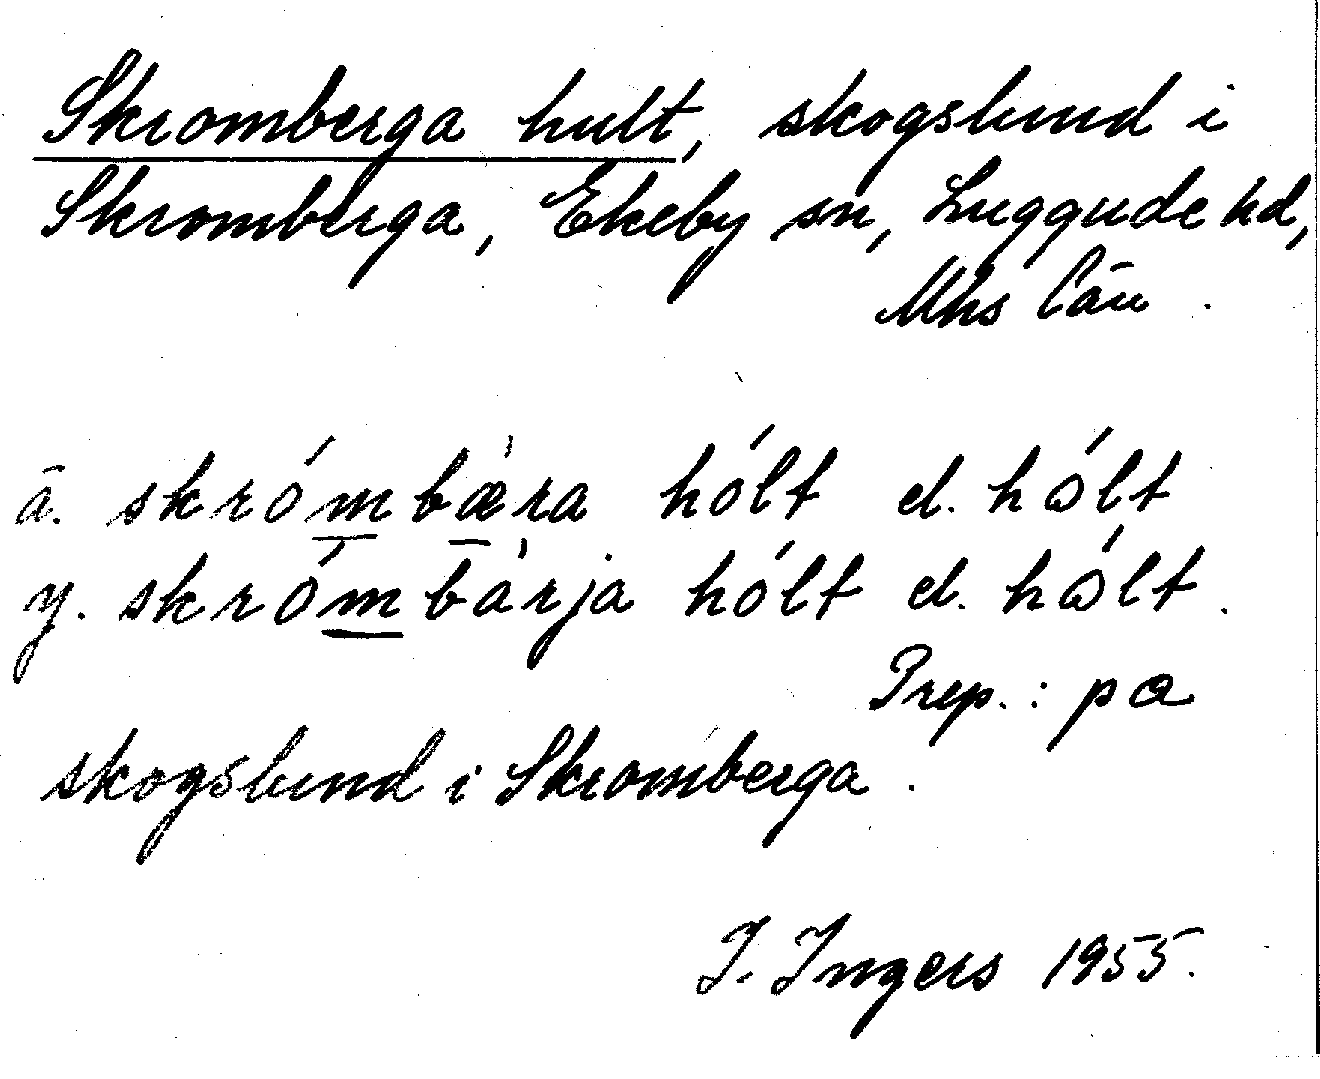 Skromberga hult, skogslund i
Skromberga, Ekeby sn, Luggude hd,
Mhs län.
ä. skrómbæ̀ra hólt el. hɷ́lt
y. skrómbàrja hólt el. hɷ́lt.
Prep.: pɑ
skogslund i Skromberga.
I. Ingers 1955.